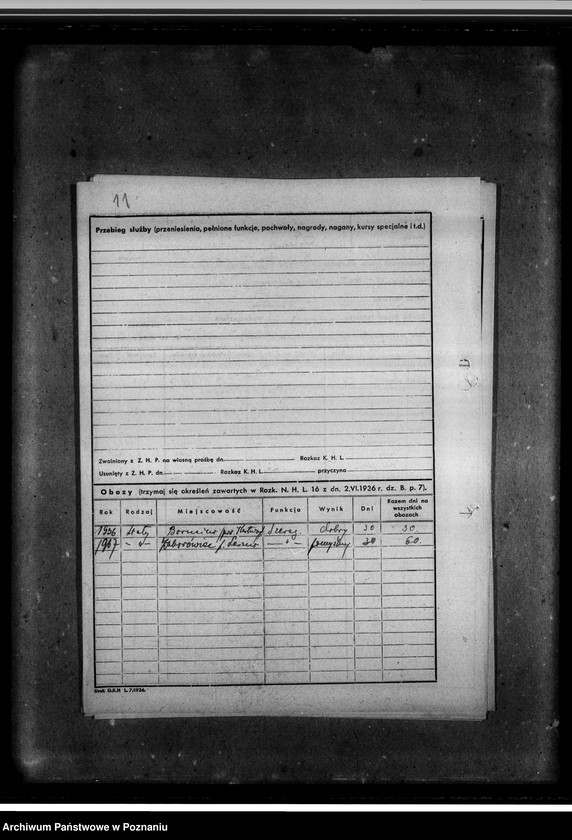 11
Przebieg służby (przeniesienia, pełnione funkcje, pochwały, nagrody, nagany, kursy specjalne i t.d.)
Zwolniony z Z. H. P. na własną prośbę dn. Rozkaz K. H. L.
Usunięty z Z. H. P. dn. Rozkaz K. H. L. przyczyna
Obozy (trzymaj się określeń zawartych w Rozk. N. H. L. 16 z dn. 2.VI.1936 r. dz. B. p. 7).
Rok Rodzaj Miejscowość Funkcja Wynik Dni Razem dni na wszystkich obozach
1936 stały dobry 30 30
1937 - " - - " - 30 60
Druk G.K.H L. 7/1936.
Archiwum Państwowe w Poznaniu